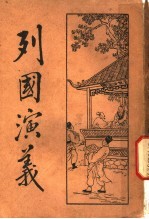 列國演義